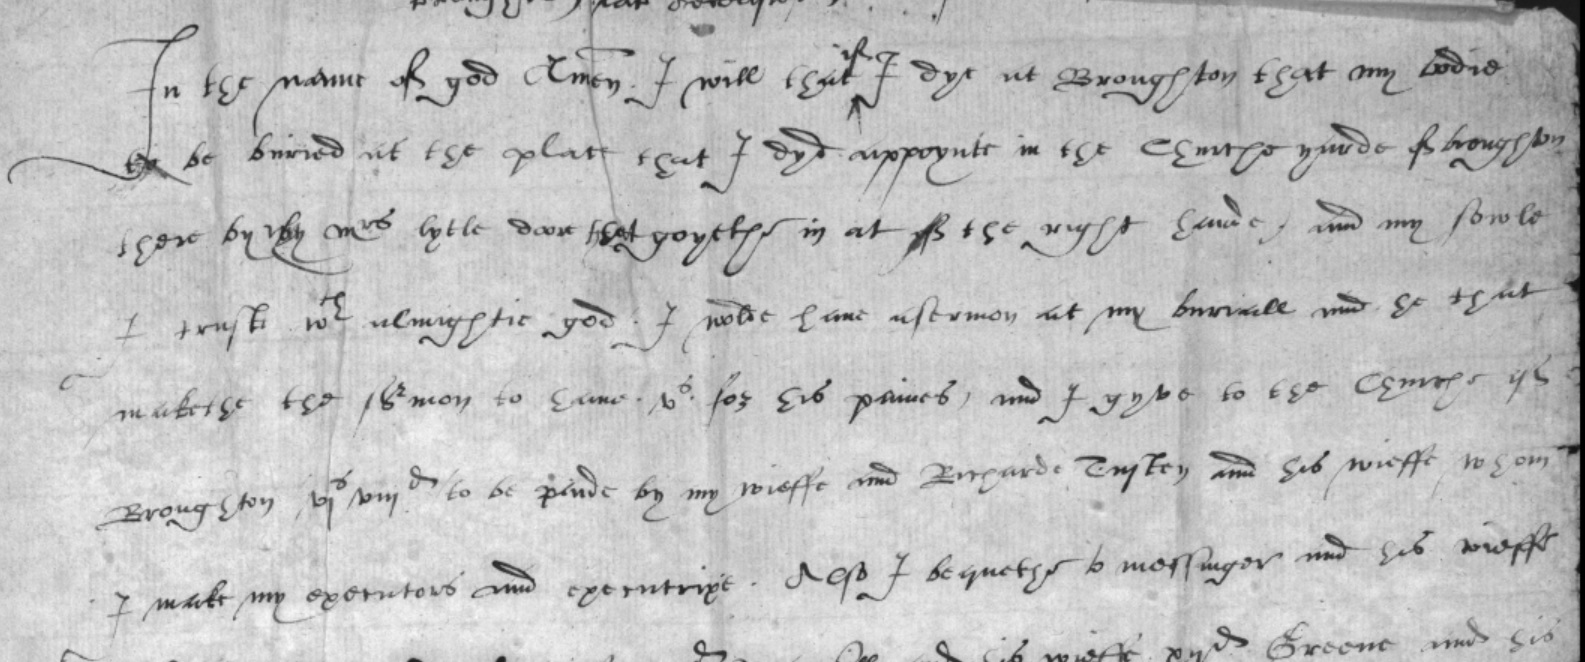 In the name of god Amen. I will that if I dye at Broughton that my bodie
to be buried at the place that I dyd appoynte in the Churche yarde of broughton
there by my mrs lytle dore that goyethe in at of the right hande, and my sowle
I truste wth almightie god. I wolde have a sermon at my buriall and he that
makethe the sermon to have vs. for his paines, and I gyve to the Churche of
Broughton vjs viijd to be paide by my wieffe and Richarde and his wieffe whom
I make my executors and executrixe. Also I bequethe to messinger and his wieffe
his wieffe xijd Greene and his